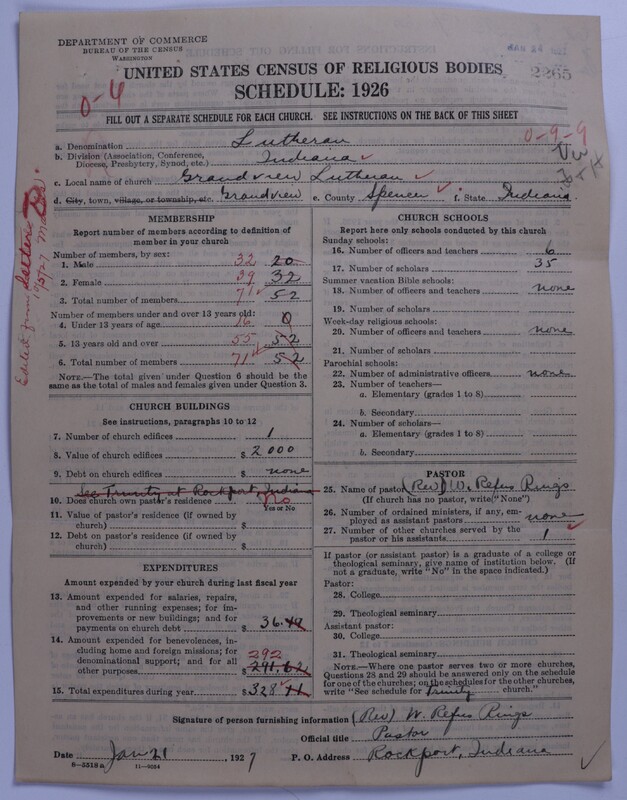 DEPARTMENT OF COMMERCE
BUREAU OF THE CENSUS
WASHINGTON
2265
UNITED STATES CENSUS OF RELIGIOUS BODIES
SCHEDULE: 1926
0-4
FILL OUT A SEPARATE SCHEDULE FOR EACH CHURCH. SEE INSTRUCTIONS ON THE BACK OF THIS SHEET
a. Denomination Lutheran 0-9-9
b. Division (Association, Conference, Diocese, Presbytery, Synod, etc.) Indiana ✓
c. Local name of church Grandview Lutheran ✓
d. City, town, village, or township, etc. Grandview e. County Spencer ✓ f. State Indiana
MEMBERSHIP
Report number of members according to definition of
member in your church
Number of members, by sex:
1. Male 32 20
2. Female 39 32
3. Total number of members 71 ✓ 52
Number of members under and over 13 years old:
4. Under 13 years of age 16 0
5. 13 years old and over 55 52
6. Total number of members 71 ✓ 52
NOTE.—The total given under Question 6 should be
same as the total of males and females given under Question 3.
CHURCH BUILDINGS
See instructions, paragraphs 10 to 12
7. Number of church edifices 1
8. Value of church edifices $ 2000
9. Debt on church edifices $ none
See Trinity at Rockport, Indiana
10. Does church own pastor's residence No
Yes or No
11. Value of pastor's residence (if owned by
church) $
12. Debt on pastor's residence (if owned by
church) $
EXPENDITURES
Amount expended by your church during last fiscal year
13. Amount expended for salaries, repairs,
and other running expenses; for im-
provements or new buildings; and for
payments on church debt $ 36.49
14. Amount expended for benevolences, in-
cluding home and foreign missions; for
denominational support; and for all
other purposes 292
$ 291.62
15. Total expenditures during year $ 328 ✓ 11
CHURCH SCHOOLS
Report here only schools conducted by this church
Sunday schools:
16. Number of officers and teachers 6
17. Number of scholars 35
Summer vacation Bible schools:
18. Number of officers and teachers none
19. Number of scholars
Week-day religious schools:
20. Number of officers and teachers none
21. Number of scholars
Parochial schools:
22. Number of administrative officers none
23. Number of teachers—
a. Elementary (grades 1 to 8)
b. Secondary
24. Number of scholars—
a. Elementary (grades 1 to 8)
b. Secondary
PASTOR
25. Name of pastor (Rev) W. Refus Rings
(If church has no pastor, write "None")
26. Number of ordained ministers, if any, em-
ployed as assistant pastors none
27. Number of other churches served by the
pastor or his assistants 1 ✓
If pastor (or assistant pastor) is a graduate of a college or
theological seminary, give name of institution below. (If
not a graduate, write "No" in the space indicated.)
Pastor:
28. College
29. Theological seminary
Assistant pastor:
30. College
31. Theological seminary
NOTE.—Where one pastor serves two or more churches,
Questions 28 and 29 should be answered only on the schedule
for one of the churches; on the schedules for the other churches,
write "See schedule for Trinity church."
Signature of person furnishing information (Rev) W. Refus Rings
Official title Pastor
Date Jan 21, 1927 P. O. Address Rockport, Indiana ✓
8-5518a 11-9034